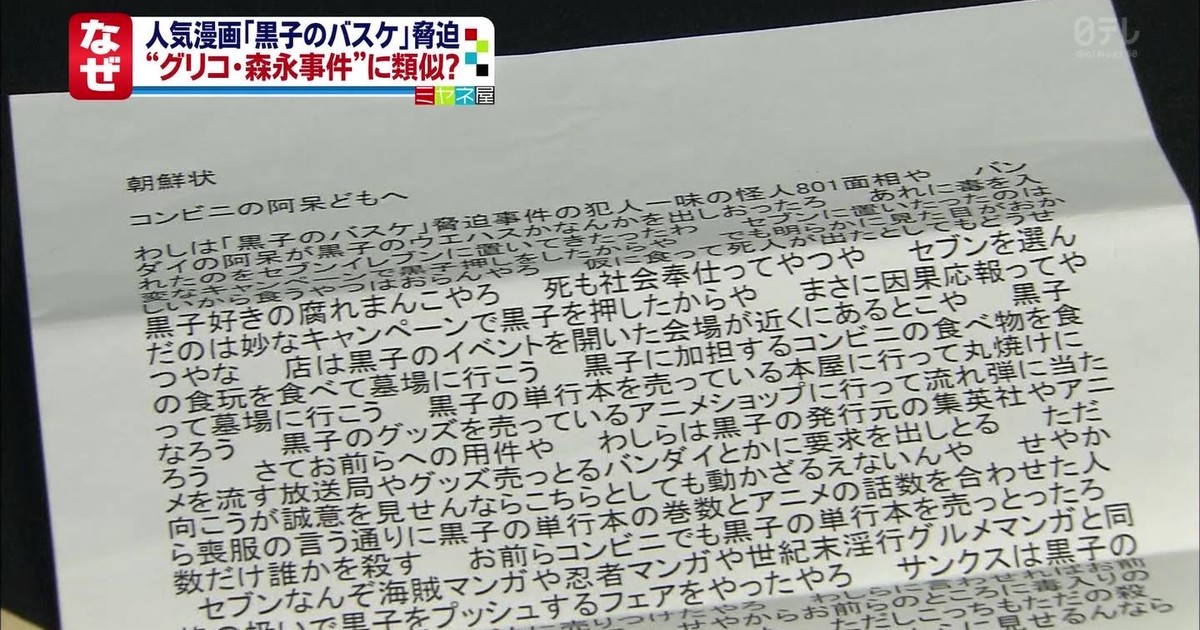 なぜ
人気漫画「黒子のバスケ」脅迫
“グリコ・森永事件”に類似?
ミヤネ屋
日テレ
朝鮮状
コンビニの阿呆どもへ
わしは「黒子のバスケ」脅迫事件の犯人一味の怪人801面相や　バン
ダイの阿呆が黒子のウエハスかなんかを出しおったろ　あれに毒を入
れたのをセブンイレブンに置いてきたったわ　セブンに置いたったのは
変なキャンペーンで黒子押しをしたからや　でも明らかに見た目がおか
しいから食うやつはおらんやろ　仮に食って死人が出たとしてもどうせ
黒子好きの腐れまんこやろ　死も社会奉仕ってやつや　セブンを選ん
だのは妙なキャンペーンで黒子を押したからや　まさに因果応報ってや
つやな　店は黒子のイベントを開いた会場が近くにあるとこや　黒子
の食玩を食べて墓場に行こう　黒子に加担するコンビニの食べ物を食
って墓場に行こう　黒子の単行本を売っている本屋に行って丸焼けに
なろう　黒子のグッズを売っているアニメショップに行って流れ弾に当た
ろう　さてお前らへの用件や　わしらは黒子の発行元の集英社やアニ
メを流す放送局やグッズ売っとるバンダイとかに要求を出しとる　ただ
向こうが誠意を見せんならこちらとしても動かざるえないんや　せやか
ら喪服の言う通りに黒子の単行本の巻数とアニメの話数を合わせた人
数だけ誰かを殺す　お前らコンビニでも黒子の単行本を売っとったろ
セブンなんぞ海賊マンガや忍者マンガや世紀末淫行グルメマンガと同
の扱いで黒子をプッシュするフェアをやったやろ　サンクスは黒子の